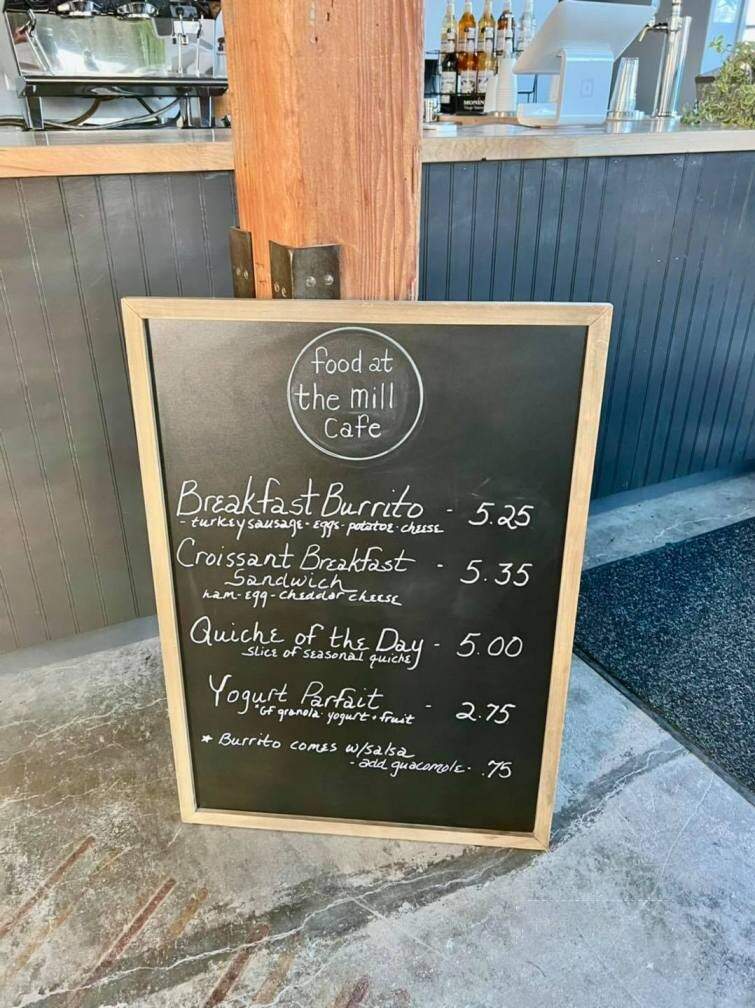 MONIN
food at
the mill
Cafe
Breakfast Burrito - 5.25
- turkey sausage - eggs - potatoe - cheese
Croissant Breakfast - 5.35
Sandwich
ham - egg - cheddar cheese
Quiche of the Day - 5.00
slice of seasonal quiche
Yogurt Parfait - 2.75
*GF granola - yogurt + fruit
* Burrito comes w/salsa
- add guacomole - .75